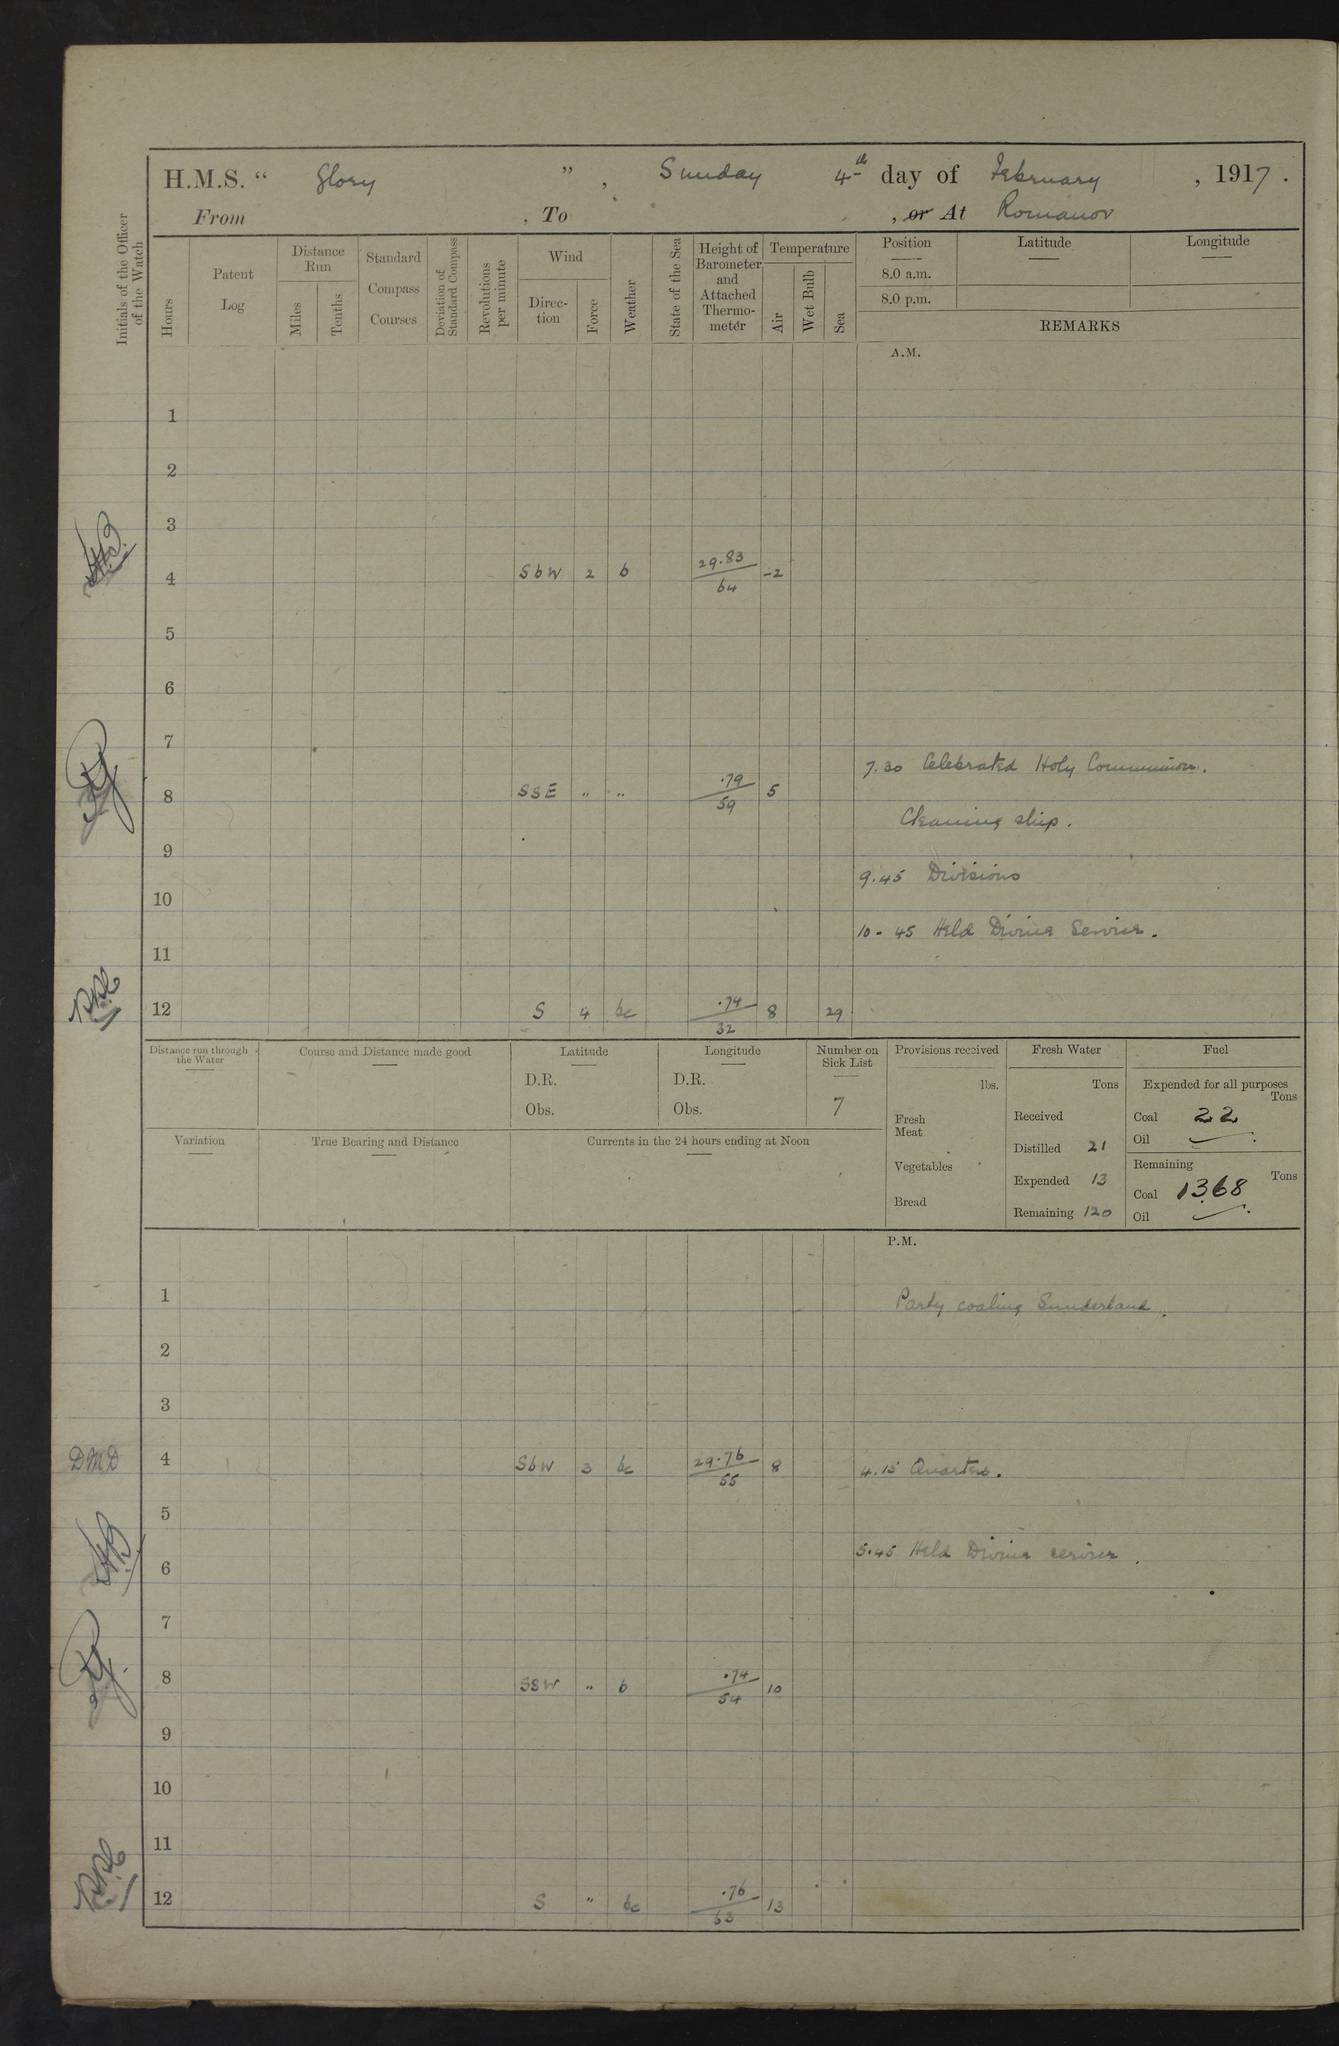 H.M.S. “ Glory ” , Sunday 4th day of February , 1917 .
From , To , or At Romanov
Initials of the Officer of the Watch
Hours
Patent Log
Distance Run
Miles
Tenths
Standard Compass Courses
Deviation of Standard Compass
Revolutions per minute
Wind
Direc-tion
Force
Weather
State of the Sea
Height of Barometer and Attached Thermo-meter
Temperature
Air
Wet Bulb
Sea
Position
Latitude
Longitude
8.0 a.m.
8.0 p.m.
REMARKS
A.M.
1
2
3
4 SbW 2 b 29.83/64 -2
5
6
7
7.30 Celebrated Holy Communion.
8 SSE " " .79/59 5
Cleaning ship.
9
9.45 Divisions
10
10-45 Held Divine Service.
11
12 S 4 bc .74/32 8 29
Distance run through the Water
Course and Distance made good
Latitude
D.R.
Obs.
Longitude
D.R.
Obs.
Number on Sick List
7
Variation
True Bearing and Distance
Currents in the 24 hours ending at Noon
Provisions received
lbs.
Fresh Meat
Vegetables
Bread
Fresh Water
Tons
Received
Distilled 21
Expended 13
Remaining 120
Fuel
Expended for all purposes
Tons
Coal 22
Oil
Remaining
Tons
Coal 1368
Oil
P.M.
1
Party coaling Sunderland.
2
3
DMD
4 SbW 3 bc 29.76/55 8 4.15 Quarters.
5
5.45 Held Divine service.
6
7
8 SSW " b .74/54 10
9
10
11
12 S " bc .76/53 13